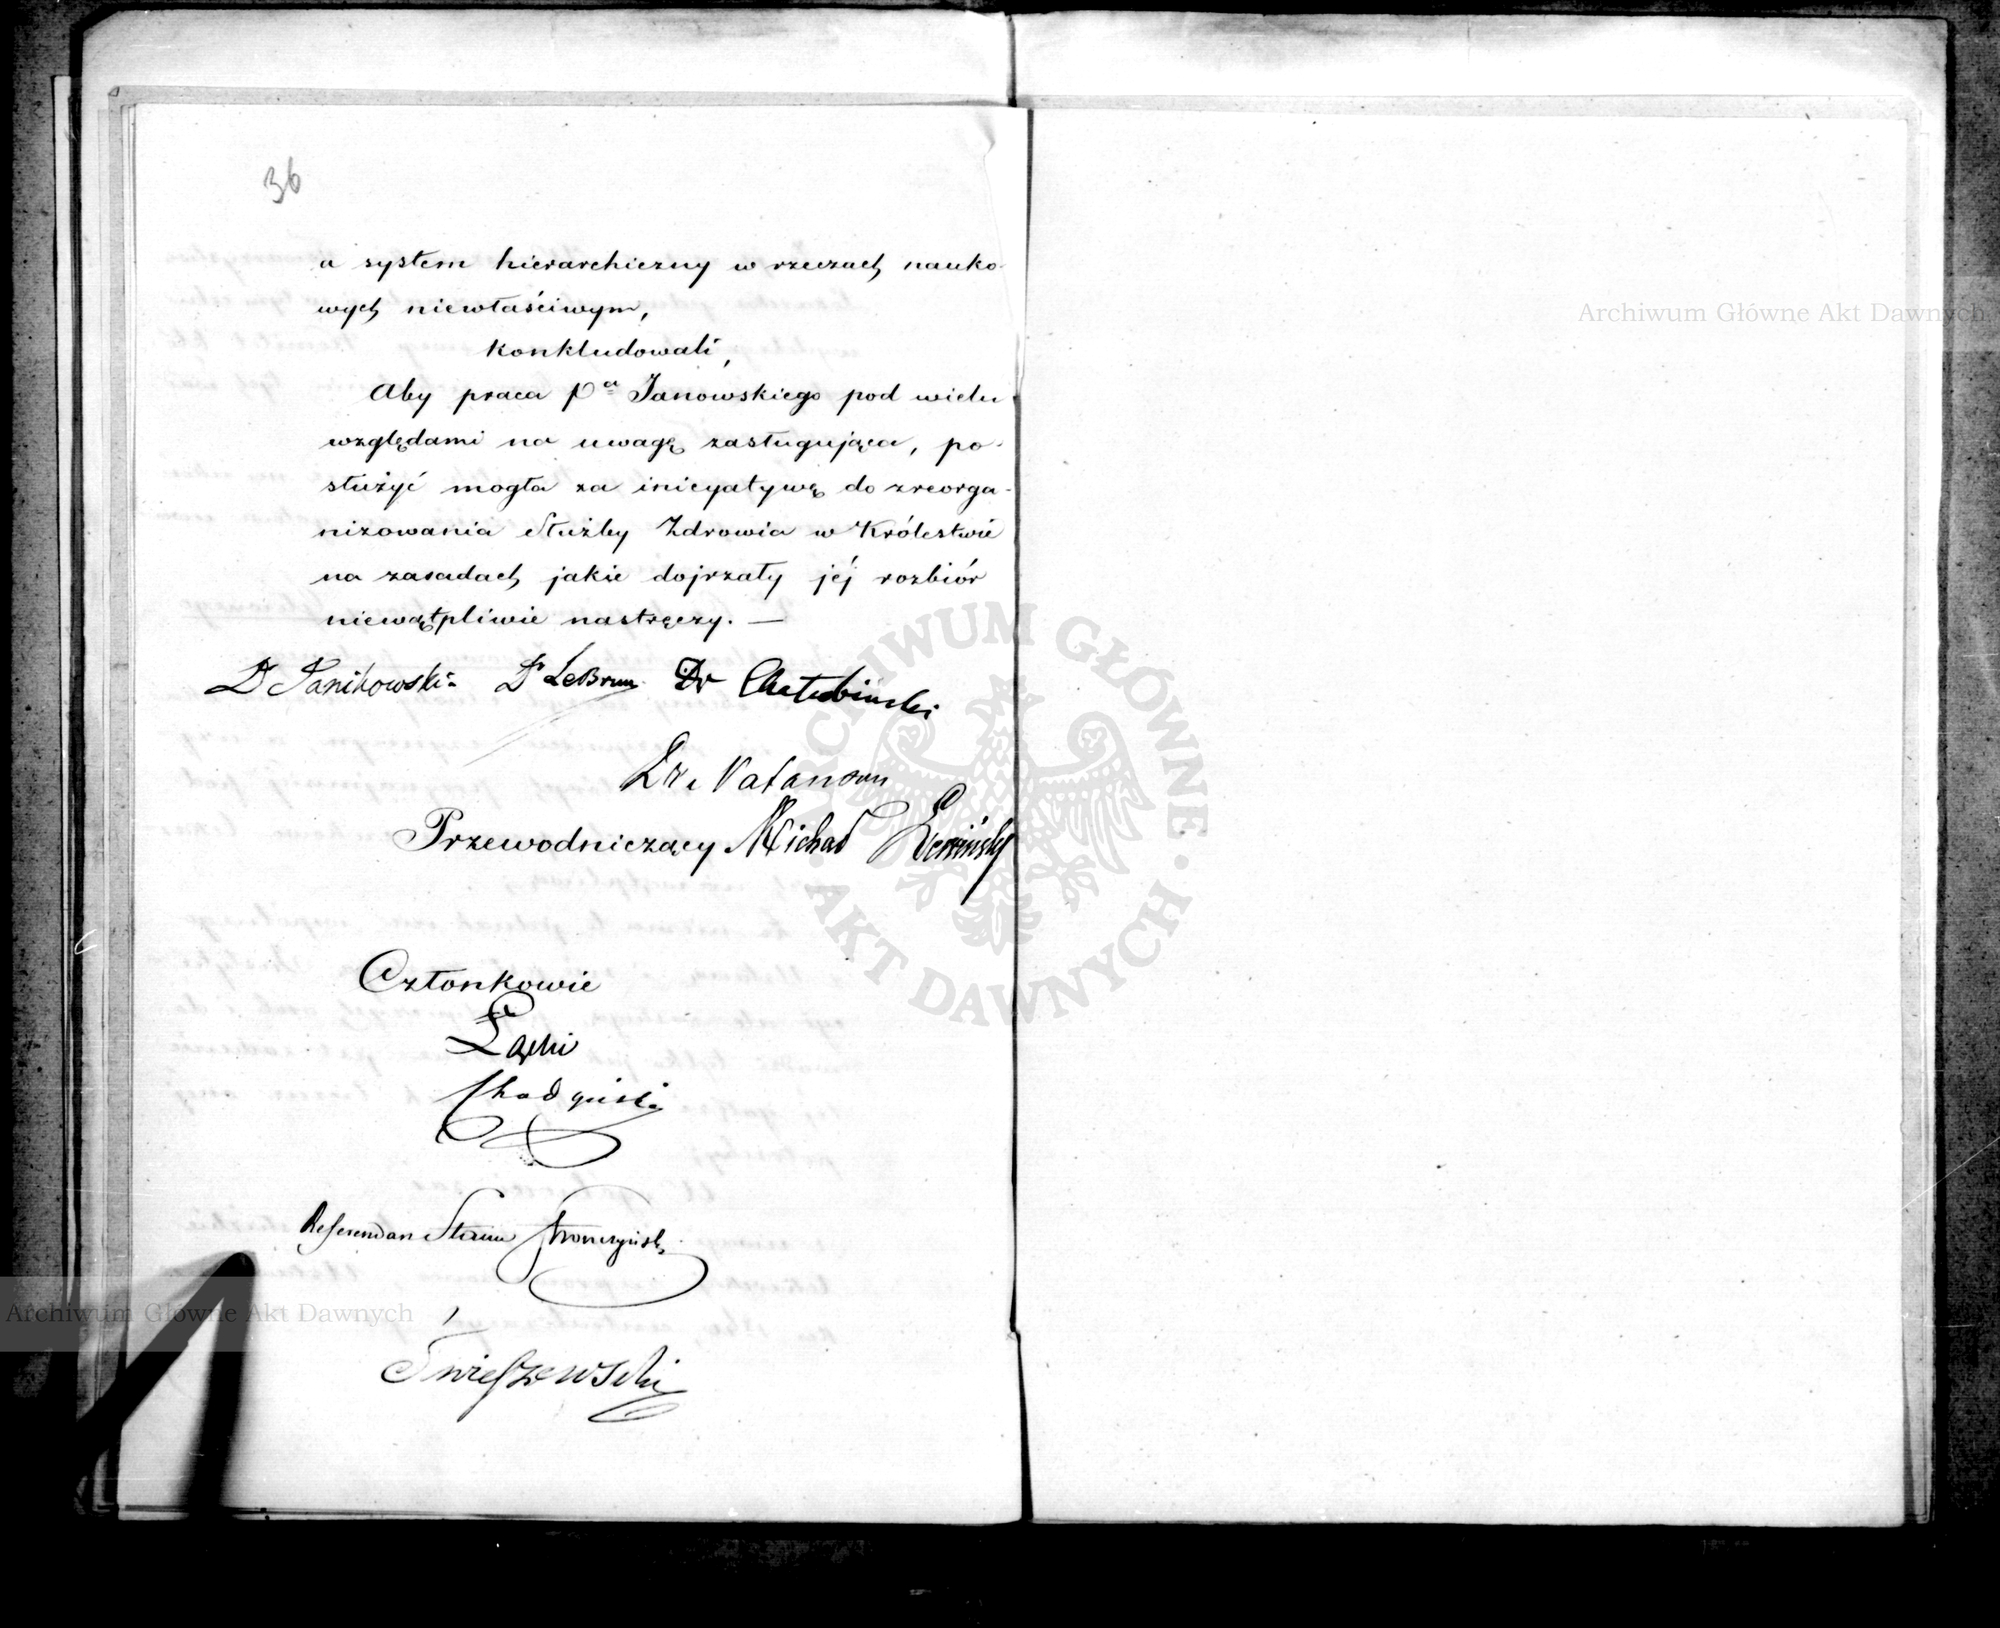 36
a system hierarchiczny w rzeczach nauko-
wych niewłaściwym,
konkludowali,
Aby praca Pa Janowskiego pod wielu
względami na uwagę zasługująca, po-
służyć mogła za inicyatywę do zreorga-
nizowania Służby Zdrowia w Królestwie
na zasadach, jakie dojrzały jéj rozbiór
niewątpliwie nastręczy. —
Dr Janikowski Dr LeBrun Dr Chałubiński
Dr. Natanson
Przewodniczący Michał
Członkowie
Łąski
Referendarz Stanu Stronczyński
Świeszewski
Archiwum Główne Akt Dawnych
Archiwum Główne Akt Dawnych
ARCHIWUM GŁÓWNE AKT DAWNYCH